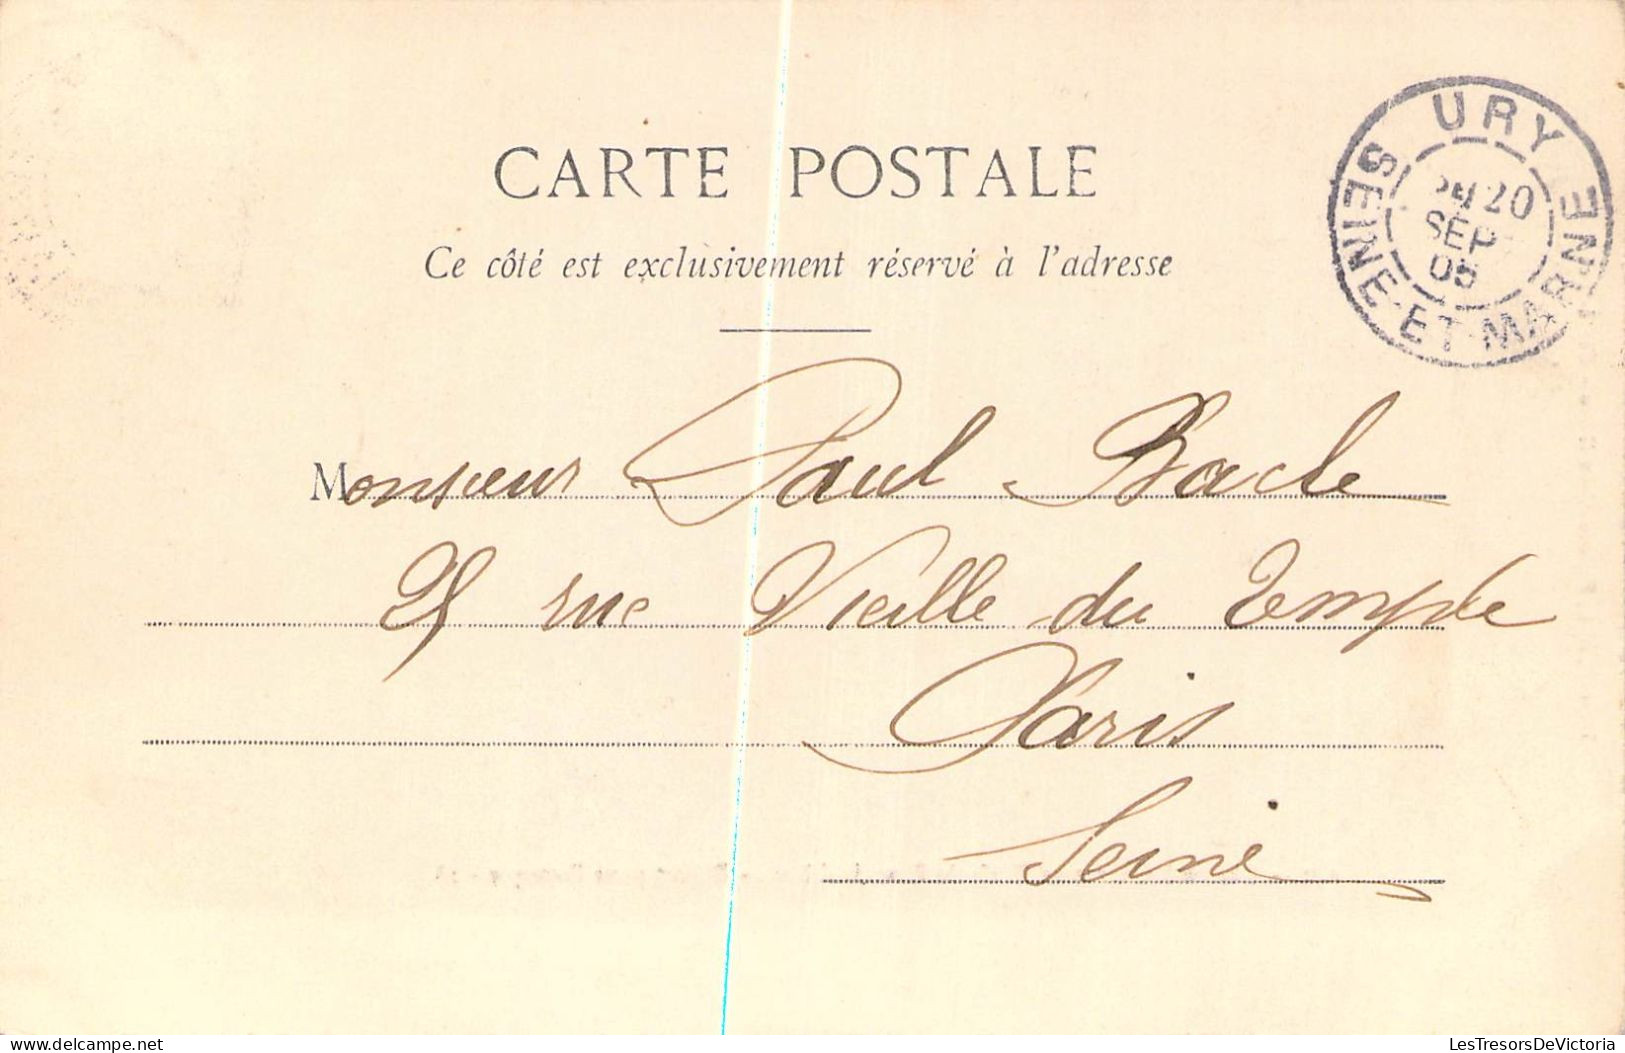 CARTE POSTALE
Ce côté est exclusivement réservé à l'adresse
URY
20
SEP
05
SEINE-ET-MARNE
Monsieur Paul Bacle
25 rue Vieille du Temple
Paris
Seine
LesTresorsDeVictoria
delcampe.net